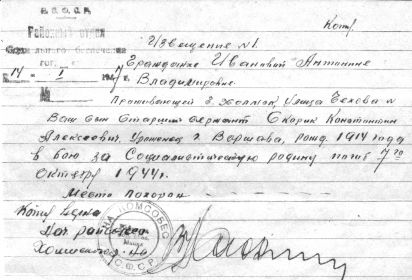 Р.С.Ф.С.Р.
Копия
Районный отдел
Извещение №1.
Социального обеспечения
Гражданке Ивановой Антонине
гор.
Владимировне.
"14" I 1947 г.
№
Проживающей г. Холмск, улица Чехова №
Ваш сын Старший сержант Скорик Константин
Алексеевич. Уроженец г. Варшава, рожд. 1914 года
в бою за Социалистическую родину погиб 7го
Октября 1944г.
Место похорон
Копия верна
Зав райсобеса